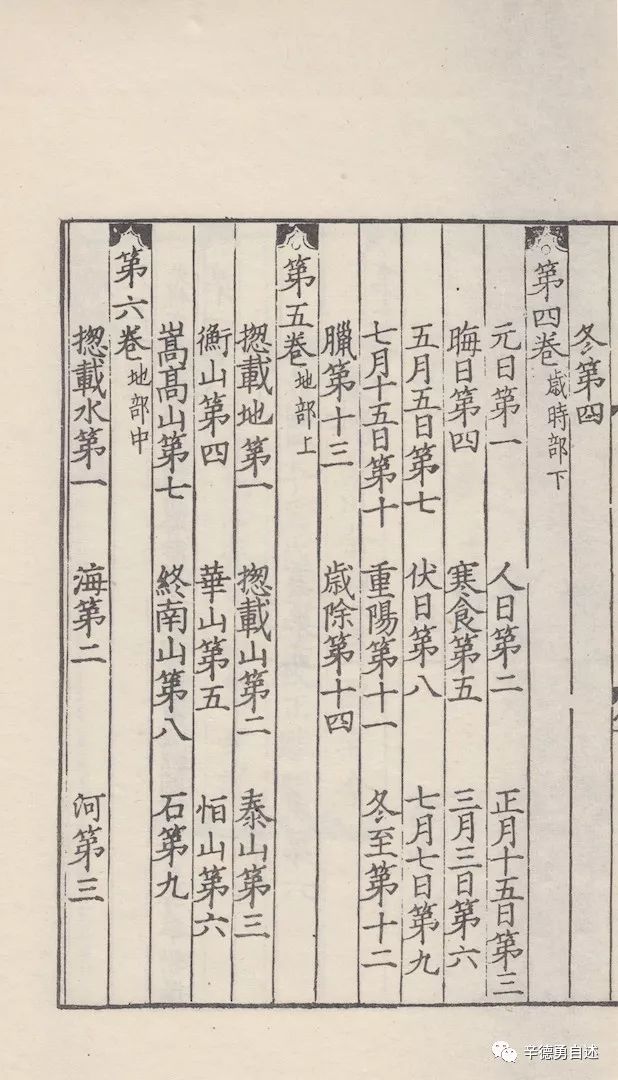 冬第四
第四卷 歲時部下
元日第一 人日第二 正月十五日第三
晦日第四 寒食第五 三月三日第六
五月五日第七 伏日第八 七月七日第九
七月十五日第十 重陽第十一 冬至第十二
臘第十三 歲除第十四
第五卷 地部上
揔載地第一 揔載山第二 泰山第三
衡山第四 華山第五 恒山第六
嵩高山第七 終南山第八 石第九
第六卷 地部中
揔載水第一 海第二 河第三
辛德勇自述